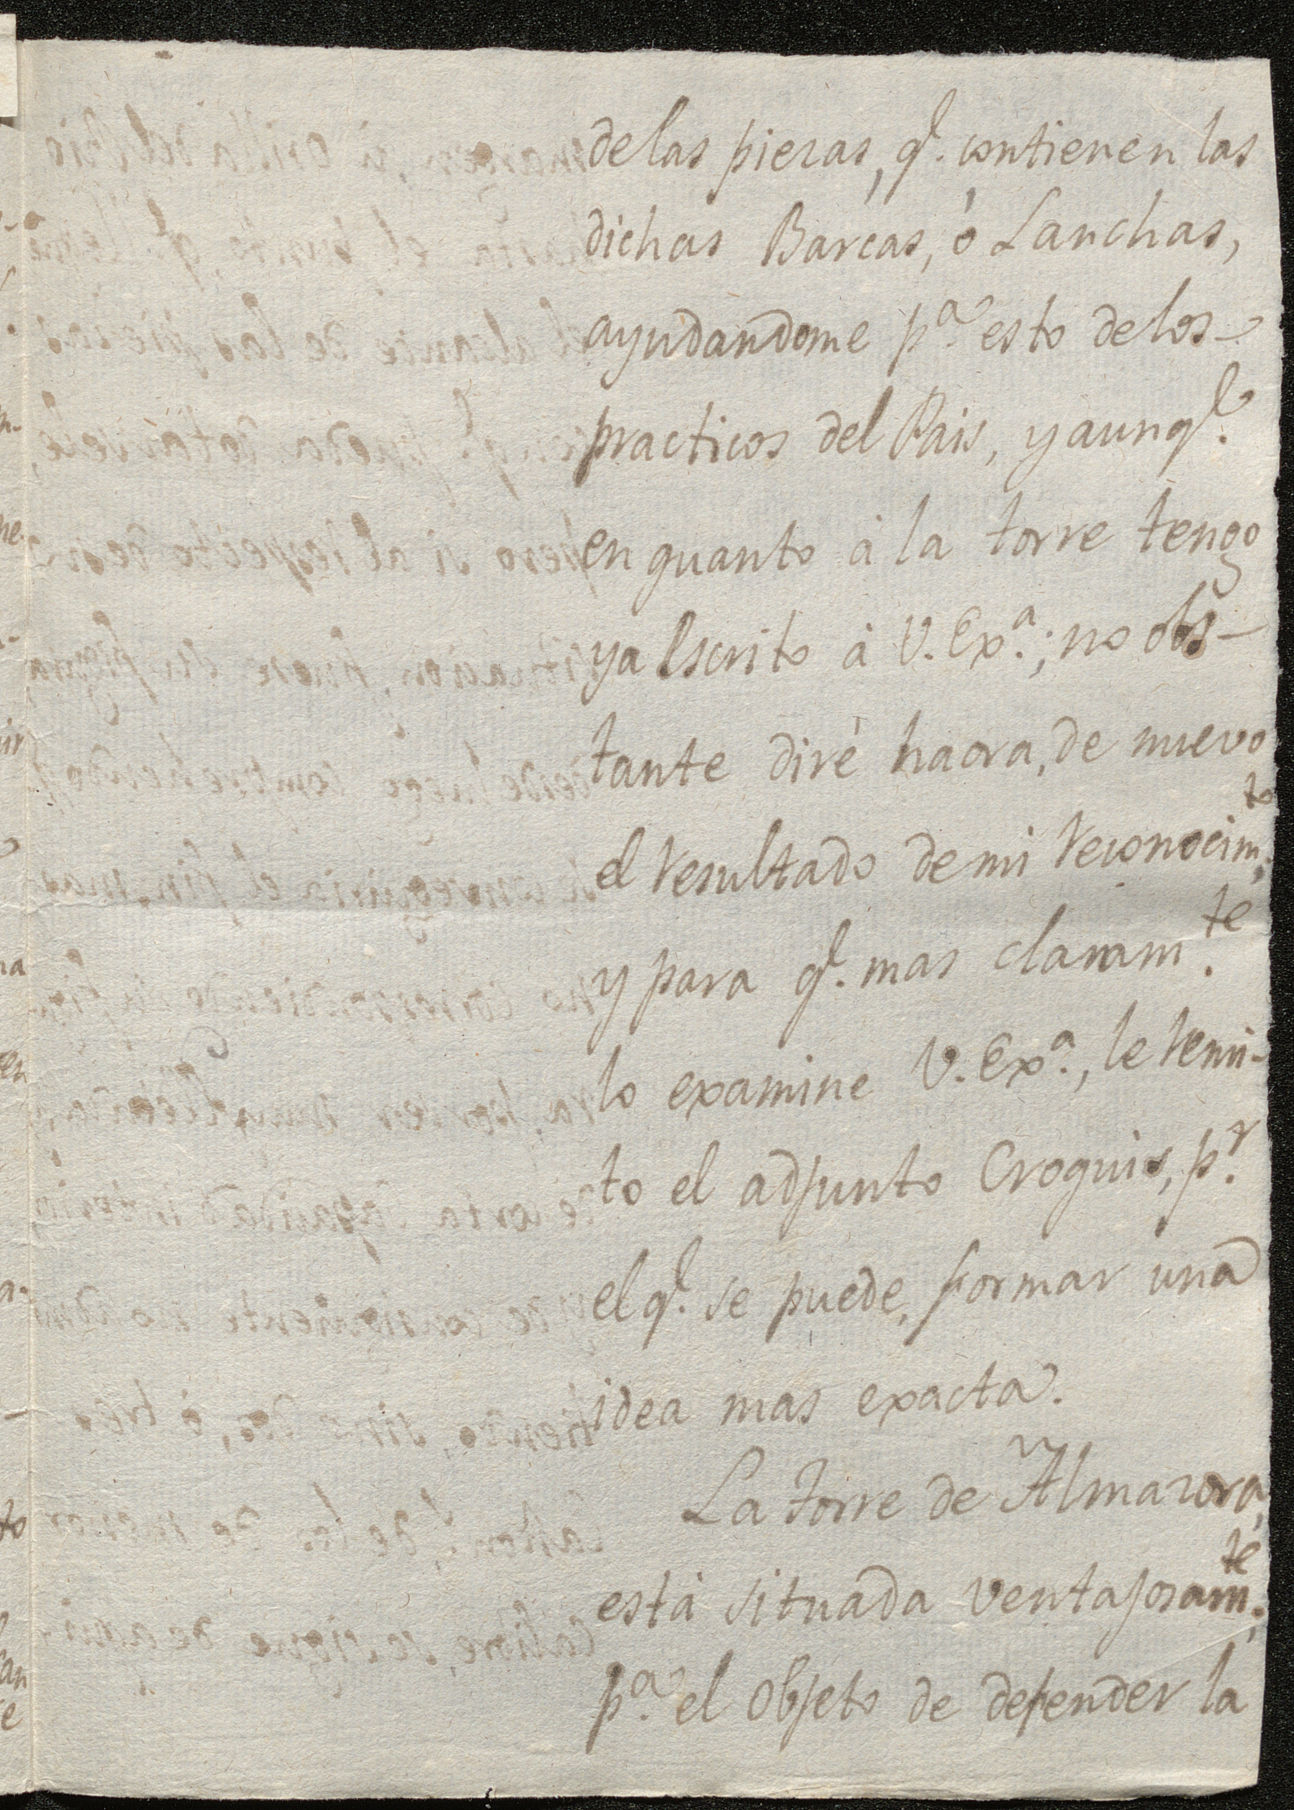 de las piezas, q.^e contienen las
dichas Barcas, ó Lanchas,
ayudandome p.^a esto de los
practicos del Pais, y aunq.^e
en quanto á la torre tengo
ya escrito á V. Ex.^a; no obs-
tante diré haora, de nuevo
el resultado de mi reconocim.^to;
y para q.^e mas claram.^te
lo examine V. Ex.^a, le remi-
to el adjunto Croquis, p.^r
el q.^e se puede, formar una
idea mas exacta.
La torre de Almazora,
está situada ventajosam.^te;
p.^a el objeto de defender la